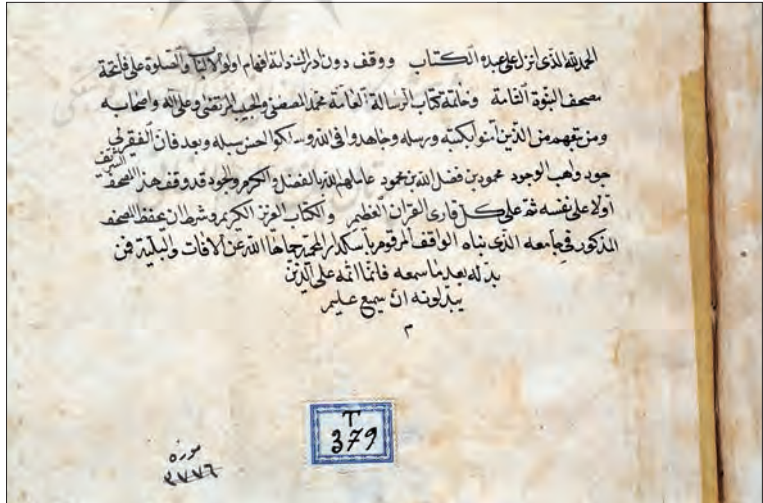 الحمد لله الذى انزل على عبده الكتاب ووقف دون ادراك ذاته افهام اولو الالباب والصلوة على فاتحة
مصحف النبوة التامة وخاتمة كتاب الرسالة العامة محمد المصطفى والحبيب المرتضى وعلى آله واصحابه
ومن تبعهم من الذين آمنوا بكتبه ورسله وجاهدوا فى الله وسلكوا احسن سبله وبعد فان الفقير الى
جود واهب الوجود محمود بن فضل الله بن محمود عاملهم الله بالفضل والكرم والجود قد وقف هذا المصحف الشريف
اولا على نفسه ثم على كل قارى القرآن العظيم والكتاب العزيز الكريم وشرط ان يحفظ المصحف
المذكور فى جامعه الذى بناه الواقف المرقوم باسكدار المحمية حماها الله عن الافات والبلية فمن
بدله بعد ما سمعه فانما اثمه على الذين
يبدلونه ان سميع عليم
م
T
379
موزه
٢٧٧٦